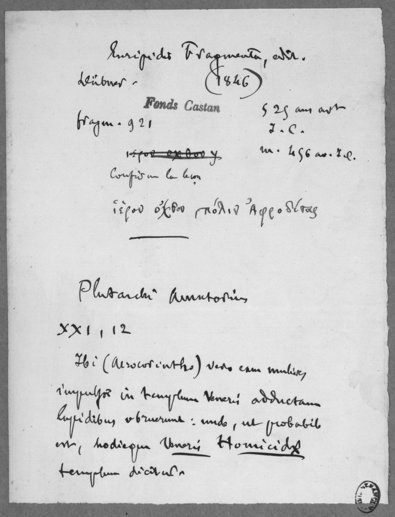 Euripidis Fragmenta, edit.
Dübner. (1846)
Fonds Castan
fragm. 921
525 ans avt
J. C.
m. 456 av. J. C.
ἱερον οχθον
ἱερον οχθον πόλιν Ἀφροδίτας
Plutarchi Amatorius
XXI, 12
Ibi (Acrocorintho) vero eam mulieres
impulsos in templum Veneris adductam
lapidibus obruerunt: unde, ut probabile
est, hodieque Veneris Homicidæ
templum dicitur.